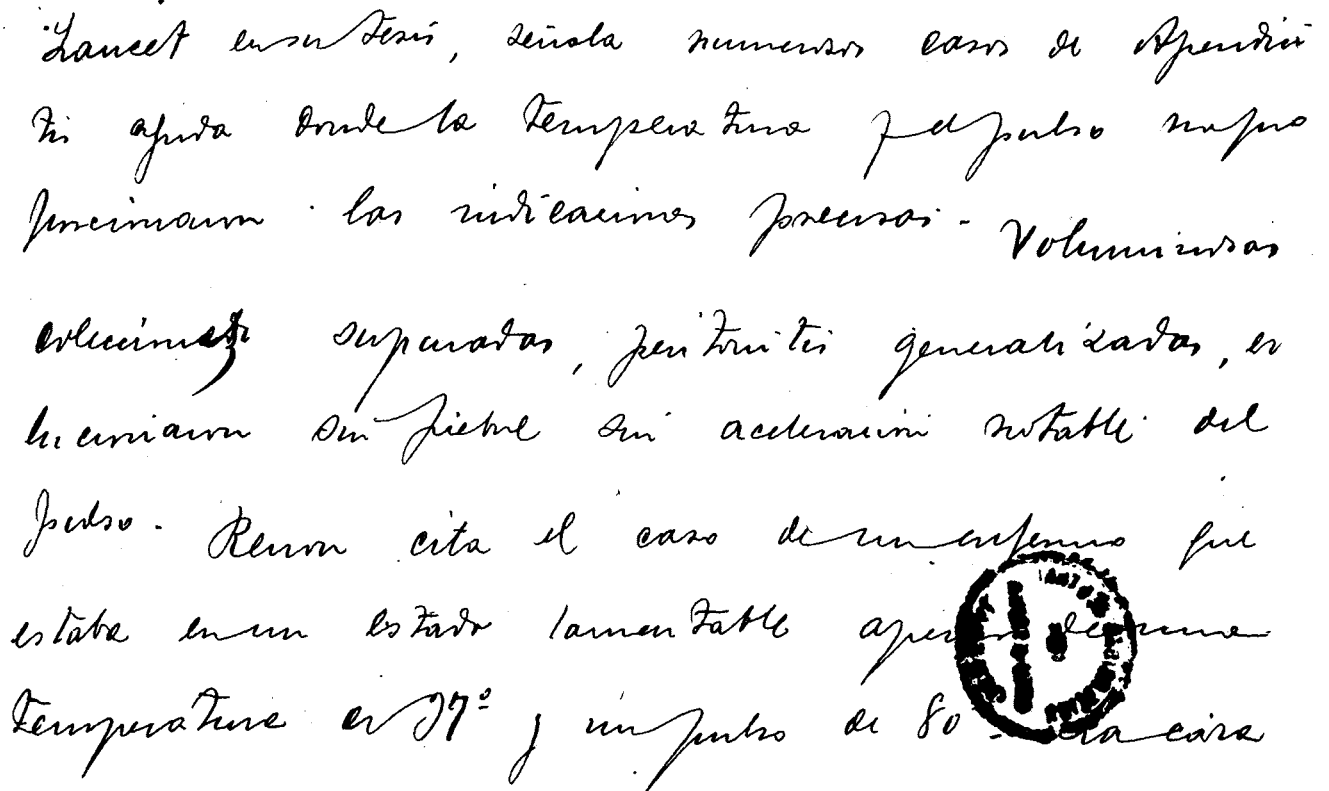 Lancet en su Tesis, señala numerosos casos de Apendici
tis aguda donde la temperatura y el pulso no pro
porcionaron las indicaciones precisas. Voluminosas
colecciones supuradas, peritonitis generalizadas, e
lucionaron sin fiebre sin aceleración notable del
pulso. Renon cita el caso de un enfermo que
estaba en un estado lamentable apesar de una
temperatura de 37º y un pulso de 80 - La cara